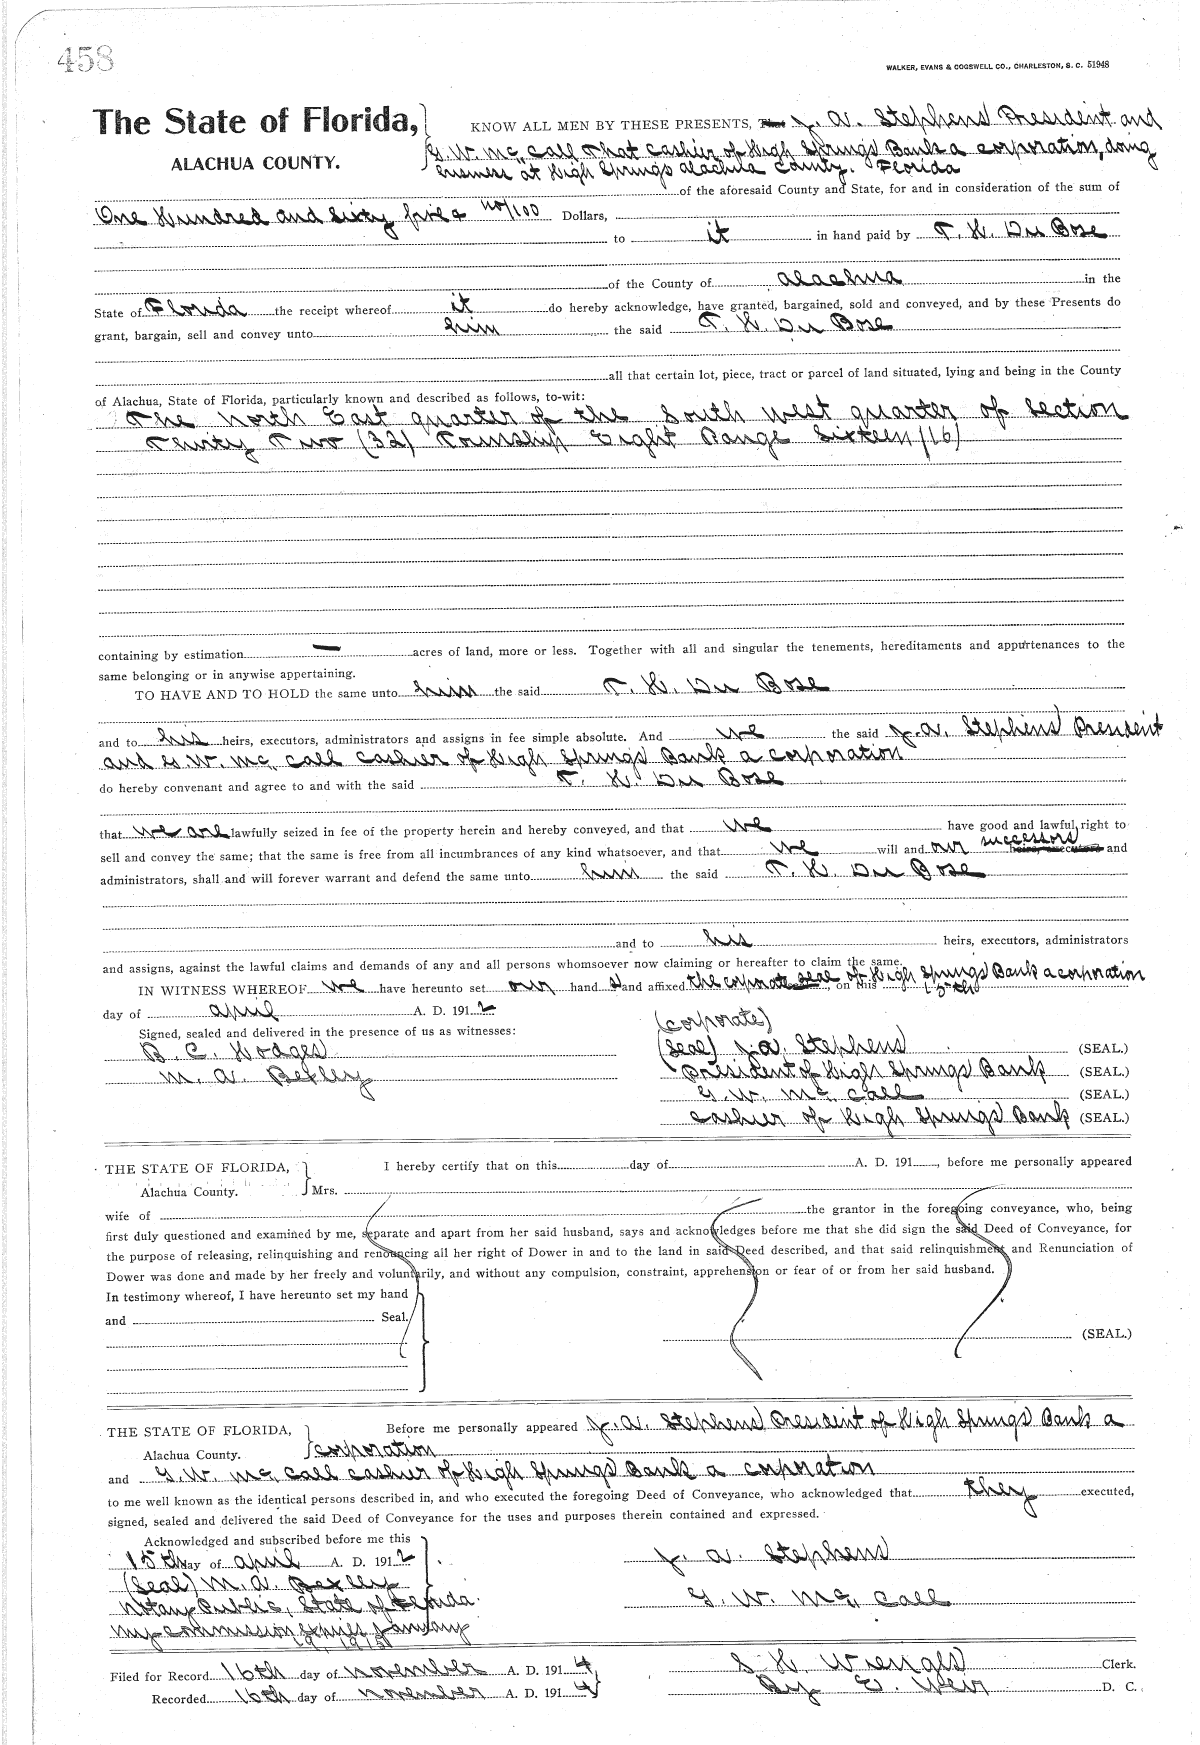 458
WALKER, EVANS & COGSWELL CO., CHARLESTON, S. C. 51948
The State of Florida,
ALACHUA COUNTY.
KNOW ALL MEN BY THESE PRESENTS, J. A. Stephens President and
G. W. Mc Call that cashier of High Springs Bank a corporation, doing
business at High Springs Alachua County. Florida
of the aforesaid County and State, for and in consideration of the sum of
One Hundred and Sixty five & no/100 Dollars,
to it in hand paid by T. H. Du Bose
of the County of Alachua in the
State of Florida the receipt whereof it do hereby acknowledge, have granted, bargained, sold and conveyed, and by these Presents do
grant, bargain, sell and convey unto him the said T. H. Du Bose
all that certain lot, piece, tract or parcel of land situated, lying and being in the County
of Alachua, State of Florida, particularly known and described as follows, to-wit:
The North East quarter of the South west quarter of section
Thirty Two (32) Township Eight Range Sixteen (16)
containing by estimation — acres of land, more or less. Together with all and singular the tenements, hereditaments and appurtenances to the
same belonging or in anywise appertaining.
TO HAVE AND TO HOLD the same unto him the said T. H. Du Bose
and to his heirs, executors, administrators and assigns in fee simple absolute. And we the said J. A. Stephens President
and G. W. Mc Call cashier of High Springs Bank a corporation
do hereby convenant and agree to and with the said T. H. Du Bose
that we are lawfully seized in fee of the property herein and hereby conveyed, and that we have good and lawful right to
sell and convey the same; that the same is free from all incumbrances of any kind whatsoever, and that we will and our successors heirs, executors and
administrators, shall and will forever warrant and defend the same unto him the said T. H. Du Bose
and to his heirs, executors, administrators
and assigns, against the lawful claims and demands of any and all persons whomsoever now claiming or hereafter to claim the same.
IN WITNESS WHEREOF we have hereunto set our hand s and affixed the corporate seal of High Springs Bank a corporation, on this 15th
day of April A. D. 1912
Signed, sealed and delivered in the presence of us as witnesses:
B. C. Hodges
M. A. Bexley
(corporate)
(Seal) J. A. Stephens (SEAL.)
President of High Springs Bank (SEAL.)
G. W. Mc Call (SEAL.)
cashier of High Springs Bank (SEAL.)
THE STATE OF FLORIDA,
Alachua County.
I hereby certify that on this day of A. D. 191 , before me personally appeared
Mrs.
wife of the grantor in the foregoing conveyance, who, being
first duly questioned and examined by me, separate and apart from her said husband, says and acknowledges before me that she did sign the said Deed of Conveyance, for
the purpose of releasing, relinquishing and renouncing all her right of Dower in and to the land in said Deed described, and that said relinquishment and Renunciation of
Dower was done and made by her freely and voluntarily, and without any compulsion, constraint, apprehension or fear of or from her said husband.
In testimony whereof, I have hereunto set my hand
and Seal.
(SEAL.)
THE STATE OF FLORIDA,
Alachua County.
Before me personally appeared J. A. Stephens President of High Springs Bank a
corporation
and G. W. Mc Call cashier of High Springs Bank a corporation
to me well known as the identical persons described in, and who executed the foregoing Deed of Conveyance, who acknowledged that they executed,
signed, sealed and delivered the said Deed of Conveyance for the uses and purposes therein contained and expressed.
Acknowledged and subscribed before me this
15th day of April A. D. 1912
(Seal) M. A. Bexley
Notary Public, State of Florida.
My commission expires January
19, 1915
J. A. Stephens
G. W. Mc Call
Filed for Record 16th day of November A. D. 1914
Recorded 16th day of November A. D. 1914
S. H. Wienges Clerk.
By E. Weir D. C.